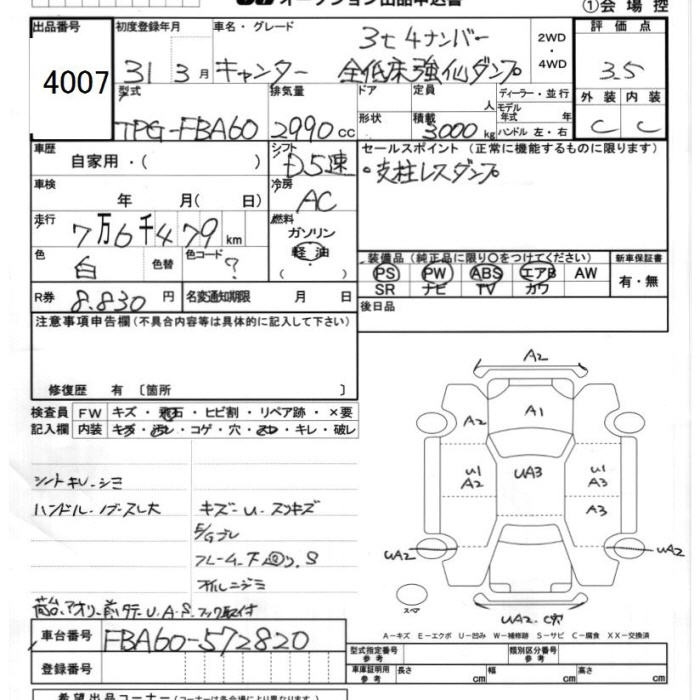 オークション出品申込書
①会場控
出品番号 初度登録年月 車名・グレード 評価点
4007
31 3月 キャンター
3t 4ナンバー
全低床強化ダンプ
2WD・4WD
3.5
型式 排気量 ドア 定員 人 ディーラー・並行 外装 内装
TPG-FBA60 2990cc 形状 積載 3000kg モデル年式 年 ハンドル 左・右 C C
車歴 自家用・( ) シフト D5速
車検 年 月( 日) 冷房 AC
走行 7万6千479km
燃料 ガソリン 軽油
色 白 色替 色コード ?
R券 8.830円 名変通知期限 月 日
セールスポイント(正常に機能するものに限ります)
・支柱レスダンプ
装備品(純正品に限り○をつけてください) 新車保証書
PS PW ABS エアB AW 有・無
SR ナビ TV カワ
後日品
注意事項申告欄(不具合内容等は具体的に記入して下さい)
修復歴 有 〔箇所 〕
検査員 FW キズ・飛石・ヒビ割・リペア跡・×要
記入欄 内装 キズ・汚レ・コゲ・穴・ヌレ・キレ・破レ
シートキレ・シミ
ハンドル・ノブスレ大
キズ・U・スリキズ
F/Gブレ
フレーム・下回り、S
オイルニジミ
荷台アオリ・前タテ・U・A・S・フック取付
A2
A2 A1
U1 A2 UA3 U1 A3
A3
UA2 UA2
スペア
UA2・C穴
A-キズ E-エクボ U-凹み W-補修跡 S-サビ C-腐食 XX-交換済
車台番号 FBA60-572820
登録番号
型式指定番号 参考 類別区分番号 参考
車庫証明用 参考 長さ cm 幅 cm 高さ cm
希望出品コーナー(コーナーは各会場により異なります)